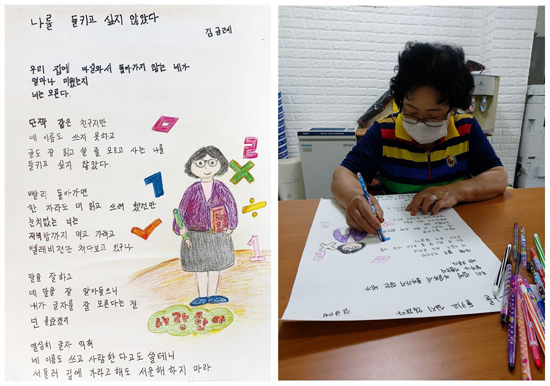 나를 들키고 싶지 않았다
김금례
우리 집에 마실와서 돌아가지 않는 네가
얼마나 미웠는지
너는 모른다
단짝 같은 친구지만
네 이름도 쓰지 못하고
글도 잘 읽고 쓸 줄 모르고 사는 나를
들키고 싶지 않았다.
빨리 돌아가면
한 자라도 더 읽고 쓰려 했건만
눈치없는 너는
저녁밥까지 먹고 가려고
텔레비전만 쳐다보고 있구나
말을 잘 하고
네 말을 잘 알아들으니
내가 글자를 잘 모른다는 걸
넌 몰랐겠지
열심히 글자 익혀
네 이름도 쓰고 사랑한다고도 할테니
서둘러 집에 가라고 해도 서운해 하지 마라
2
×
7
÷
1